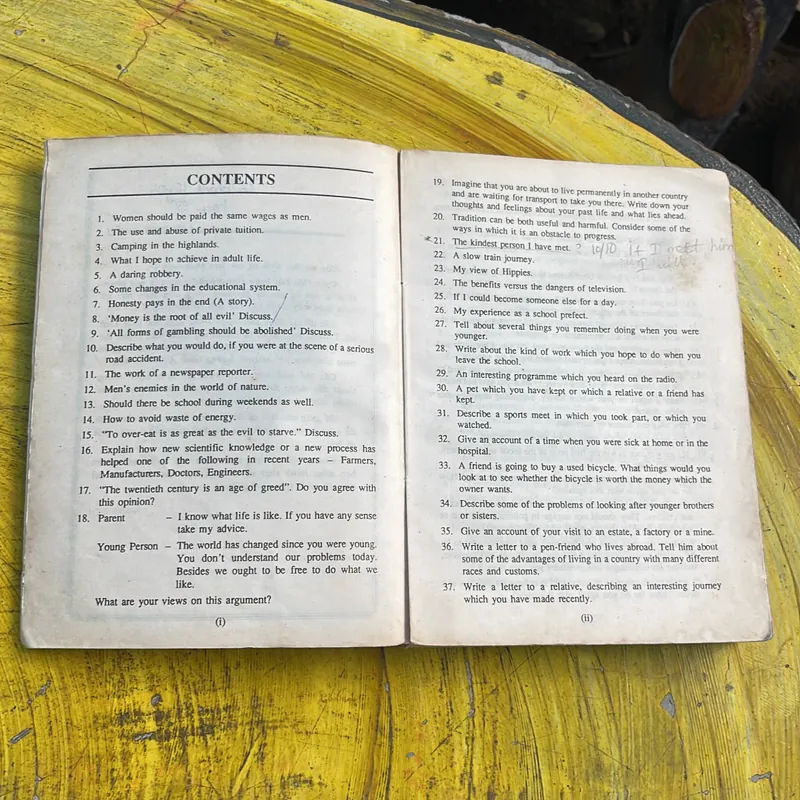 CONTENTS
1. Women should be paid the same wages as men.
2. The use and abuse of private tuition.
3. Camping in the highlands.
4. What I hope to achieve in adult life.
5. A daring robbery.
6. Some changes in the educational system.
7. Honesty pays in the end (A story).
8. ‘Money is the root of all evil’ Discuss.
9. ‘All forms of gambling should be abolished’ Discuss.
10. Describe what you would do, if you were at the scene of a serious
road accident.
11. The work of a newspaper reporter.
12. Men's enemies in the world of nature.
13. Should there be school during weekends as well.
14. How to avoid waste of energy.
15. “To over-eat is as great as the evil to starve.” Discuss.
16. Explain how new scientific knowledge or a new process has
helped one of the following in recent years – Farmers,
Manufacturers, Doctors, Engineers.
17. “The twentieth century is an age of greed”. Do you agree with
this opinion?
18. Parent – I know what life is like. If you have any sense
take my advice.
Young Person – The world has changed since you were young.
You don't understand our problems today.
Besides we ought to be free to do what we
like.
What are your views on this argument?
(i)
19. Imagine that you are about to live permanently in another country
and are waiting for transport to take you there. Write down your
thoughts and feelings about your past life and what lies ahead.
20. Tradition can be both useful and harmful. Consider some of the
ways in which it is an obstacle to progress.
21. The kindest person I have met. ? 10/10 if I met him
I will
22. A slow train journey.
23. My view of Hippies.
24. The benefits versus the dangers of television.
25. If I could become someone else for a day.
26. My experience as a school prefect.
27. Tell about several things you remember doing when you were
younger.
28. Write about the kind of work which you hope to do when you
leave the school.
29. An interesting programme which you heard on the radio.
30. A pet which you have kept or which a relative or a friend has
kept.
31. Describe a sports meet in which you took part, or which you
watched.
32. Give an account of a time when you were sick at home or in the
hospital.
33. A friend is going to buy a used bicycle. What things would you
look at to see whether the bicycle is worth the money which the
owner wants.
34. Describe some of the problems of looking after younger brothers
or sisters.
35. Give an account of your visit to an estate, a factory or a mine.
36. Write a letter to a pen-friend who lives abroad. Tell him about
some of the advantages of living in a country with many different
races and customs.
37. Write a letter to a relative, describing an interesting journey
which you have made recently.
(ii)